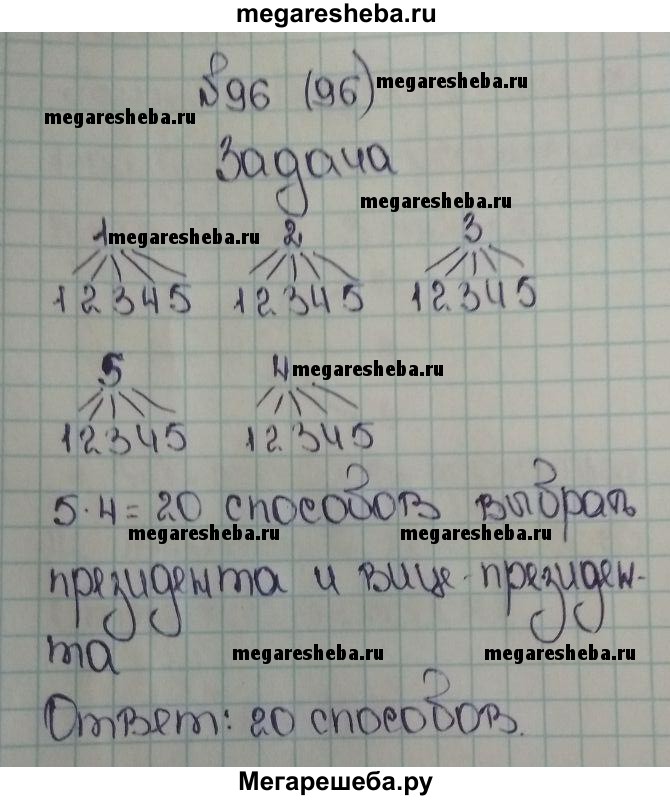 megaresheba.ru
№96 (96) megaresheba.ru
megaresheba.ru
Задача
megaresheba.ru
1 megaresheba.ru 2 3
1 2 3 4 5 1 2 3 4 5 1 2 3 4 5
5 4 megaresheba.ru
1 2 3 4 5 1 2 3 4 5
5·4=20 способов выбрать
megaresheba.ru megaresheba.ru
президента и вице-президен-
та megaresheba.ru megaresheba.ru
Ответ: 20 способов.
Мегарешеба.ру